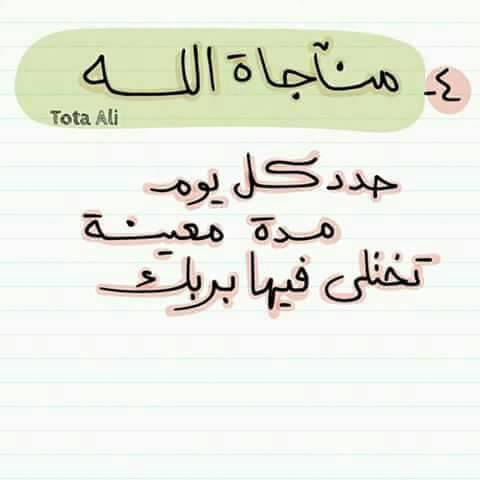 ٤- منآجاة الله
Tota Ali
حدد كل يوم
مدة معينة
تختلى فيها بربك